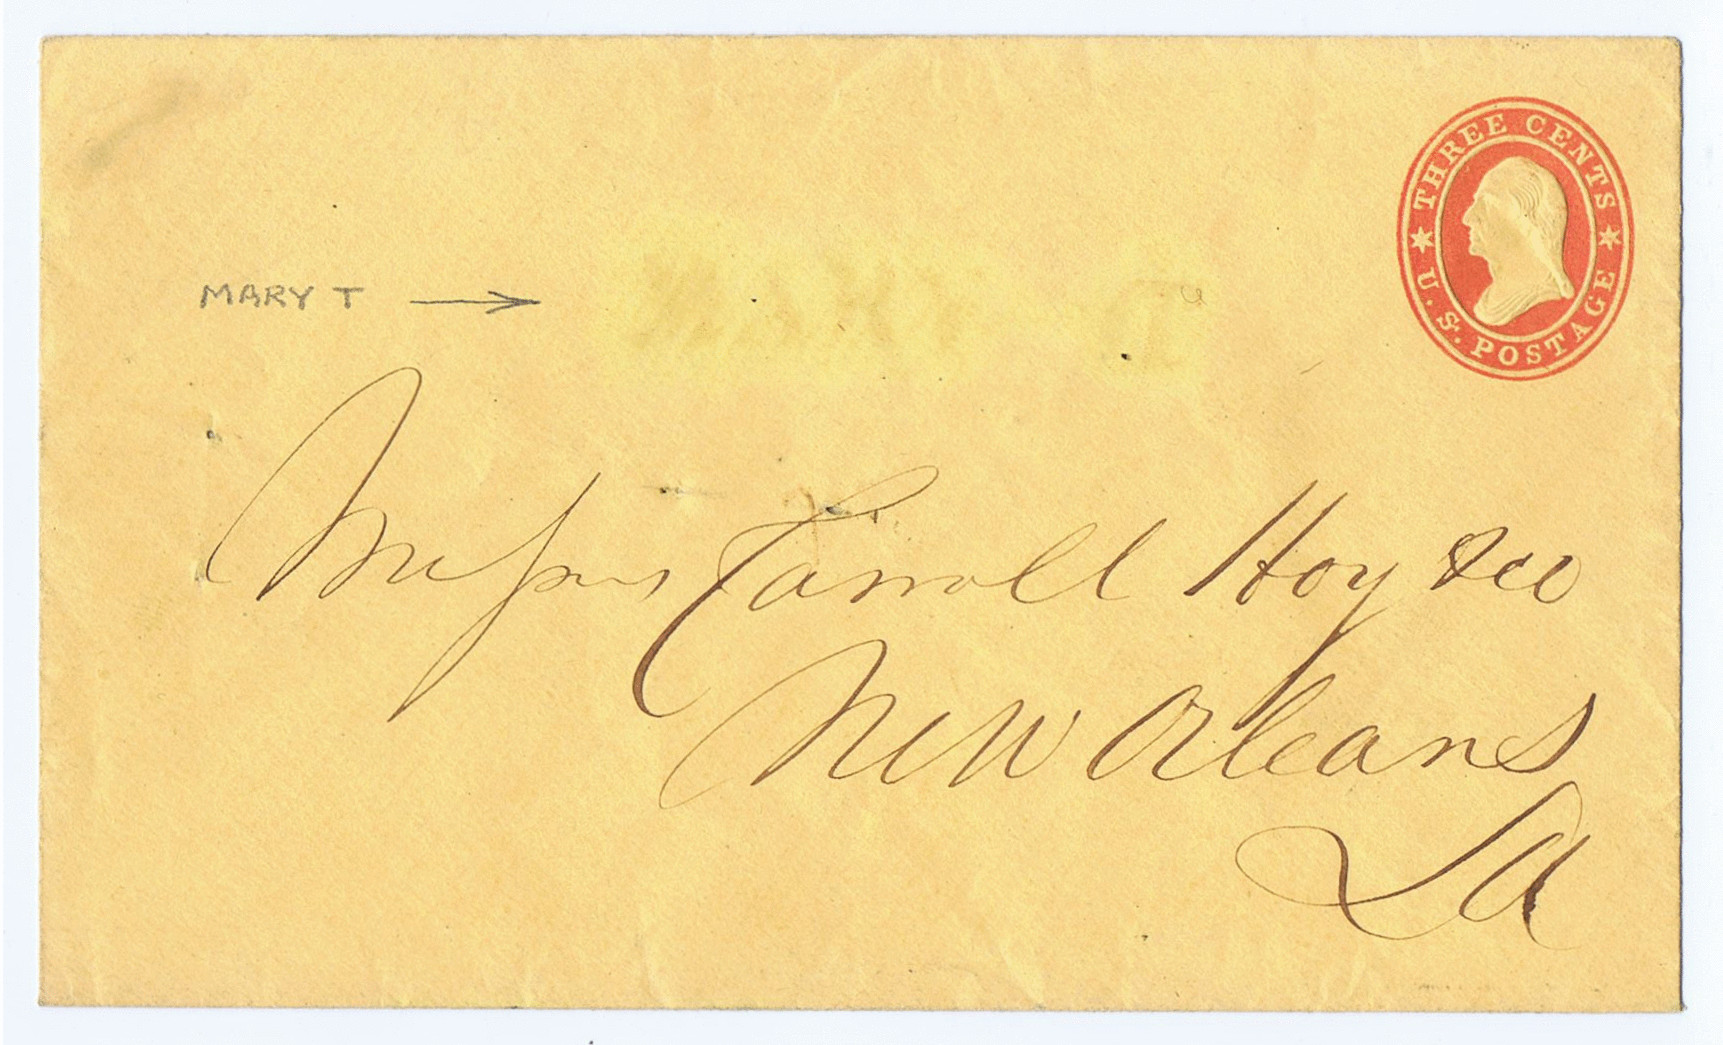 THREE CENTS
U.S. POSTAGE
MARY T
Messrs Carroll Hoy & Co
New Orleans
La